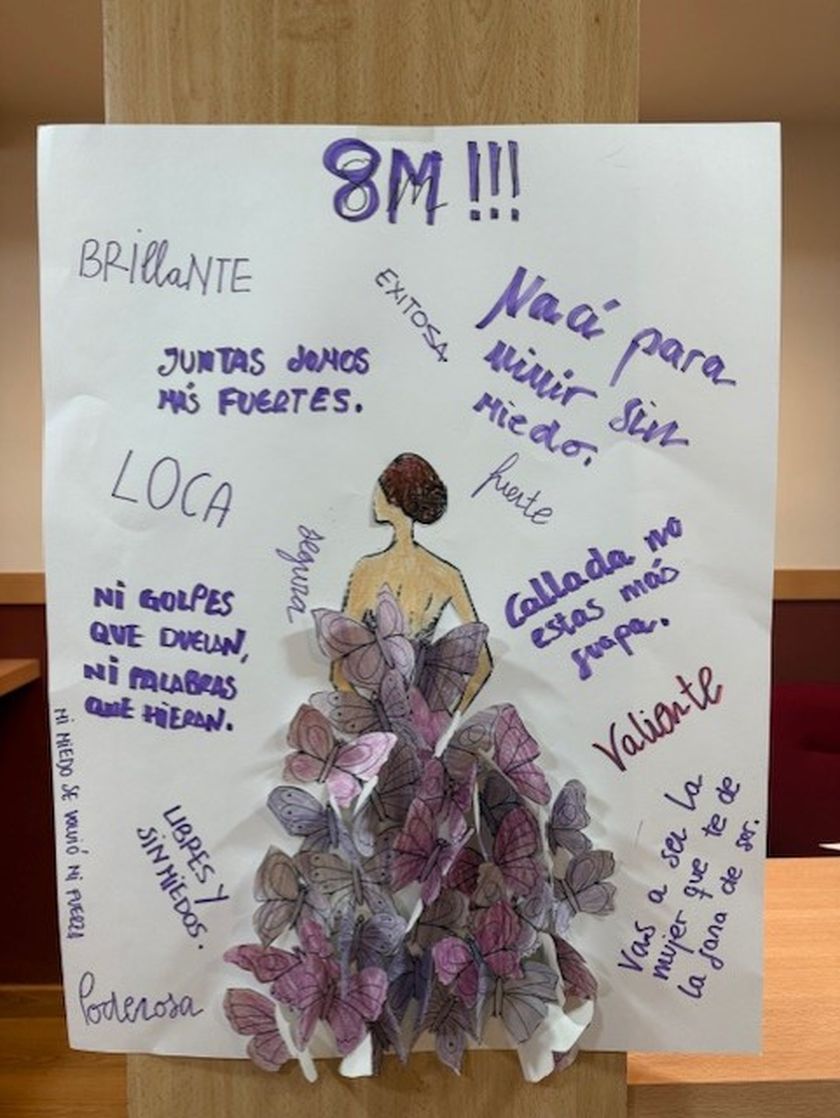 8M !!!
BRillaNTE
EXITOSA
Nací para
vivir sin
miedo.
JUNTAS SOMOS
MÁS FUERTES.
LOCA
fuerte
segura
Callada no
estas más
guapa.
NI GOLPES
QUE DUELAN,
NI PALABRAS
QUE HIERAN.
Valiente
MI MIEDO SE VOLVIÓ MI FUERZA
LIBRES Y
SIN MIEDOS.
Vas a ser la
mujer que te de
la gana de ser.
Poderosa